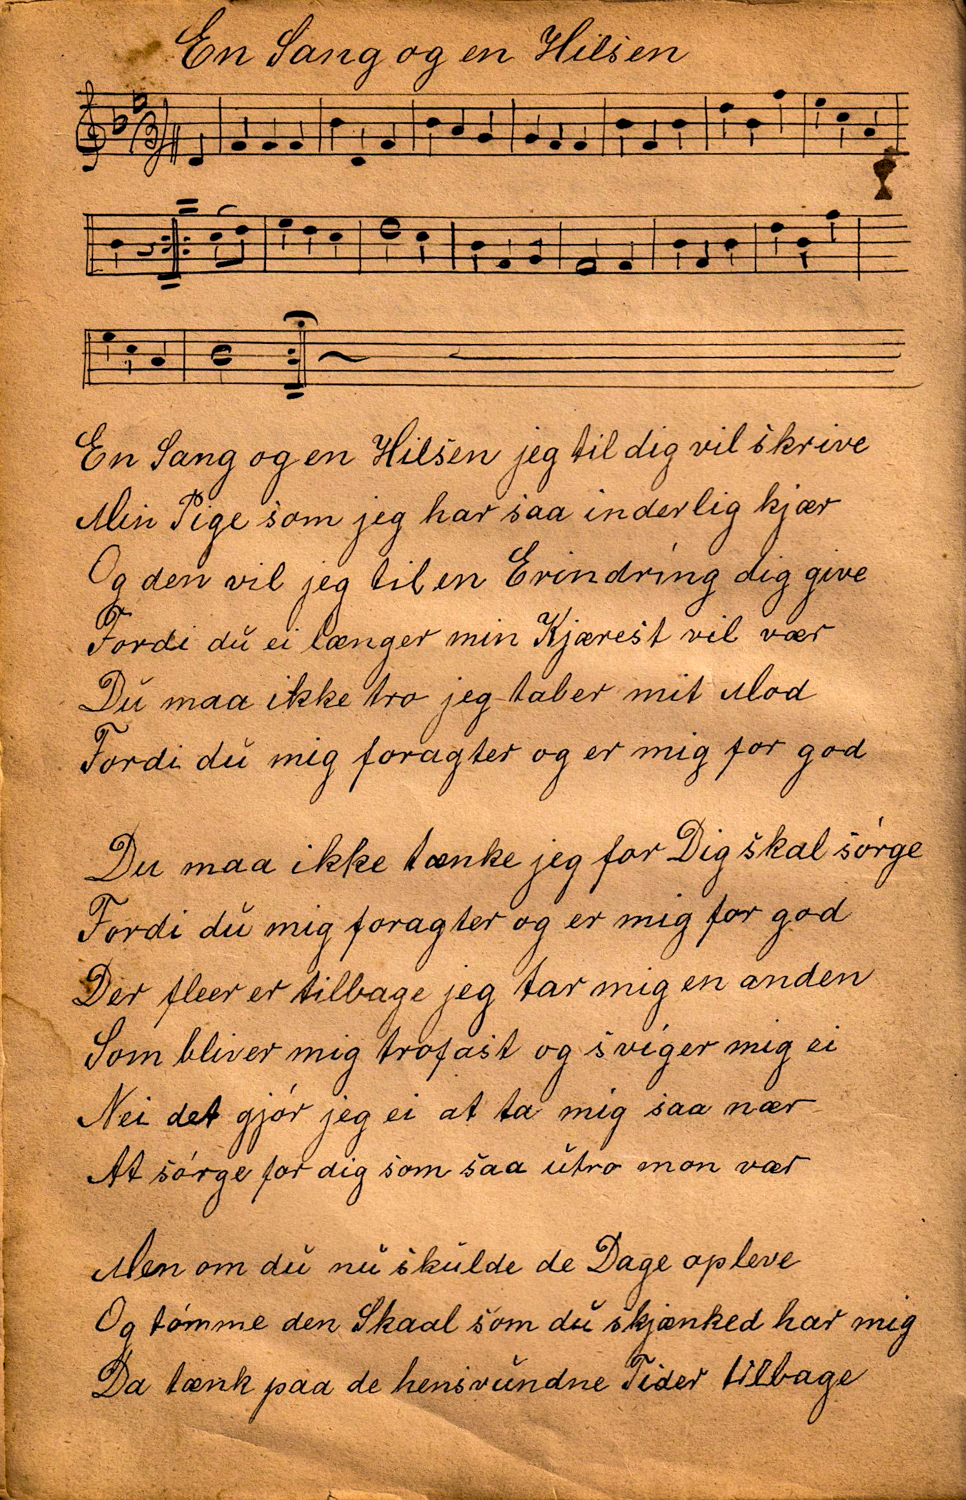 En Sang og en Hilsen
En Sang og en Hilsen jeg til dig vil skrive
Min Pige som jeg har saa inderlig kjær
Og den vil jeg til en Erindring dig give
Fordi du ei længer min Kjærest vil vær
Du maa ikke tro jeg taber mit Mod
Fordi du mig foragter og er mig for god
Du maa ikke tænke jeg for Dig skal sórge
Fordi du mig foragter og er mig for god
Der fleer er tilbage jeg tar mig en anden
Som bliver mig trofast og sviger mig ei
Nei det gjór jeg ei at ta mig saa nær
At sórge for dig som saa utro mon vær
Men om du nu skulde de Dage opleve
Og tómme den Skaal som du skjænked har mig
Da tænk paa de hensvundne Tider tilbage